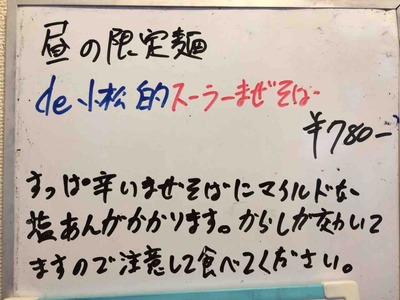 昼の限定麺
de 小松的スーラーまぜそば
¥780-
すっぱ辛いまぜそばにマイルドな
塩あんがかかります。からしが効いて
ますので注意して食べてください。